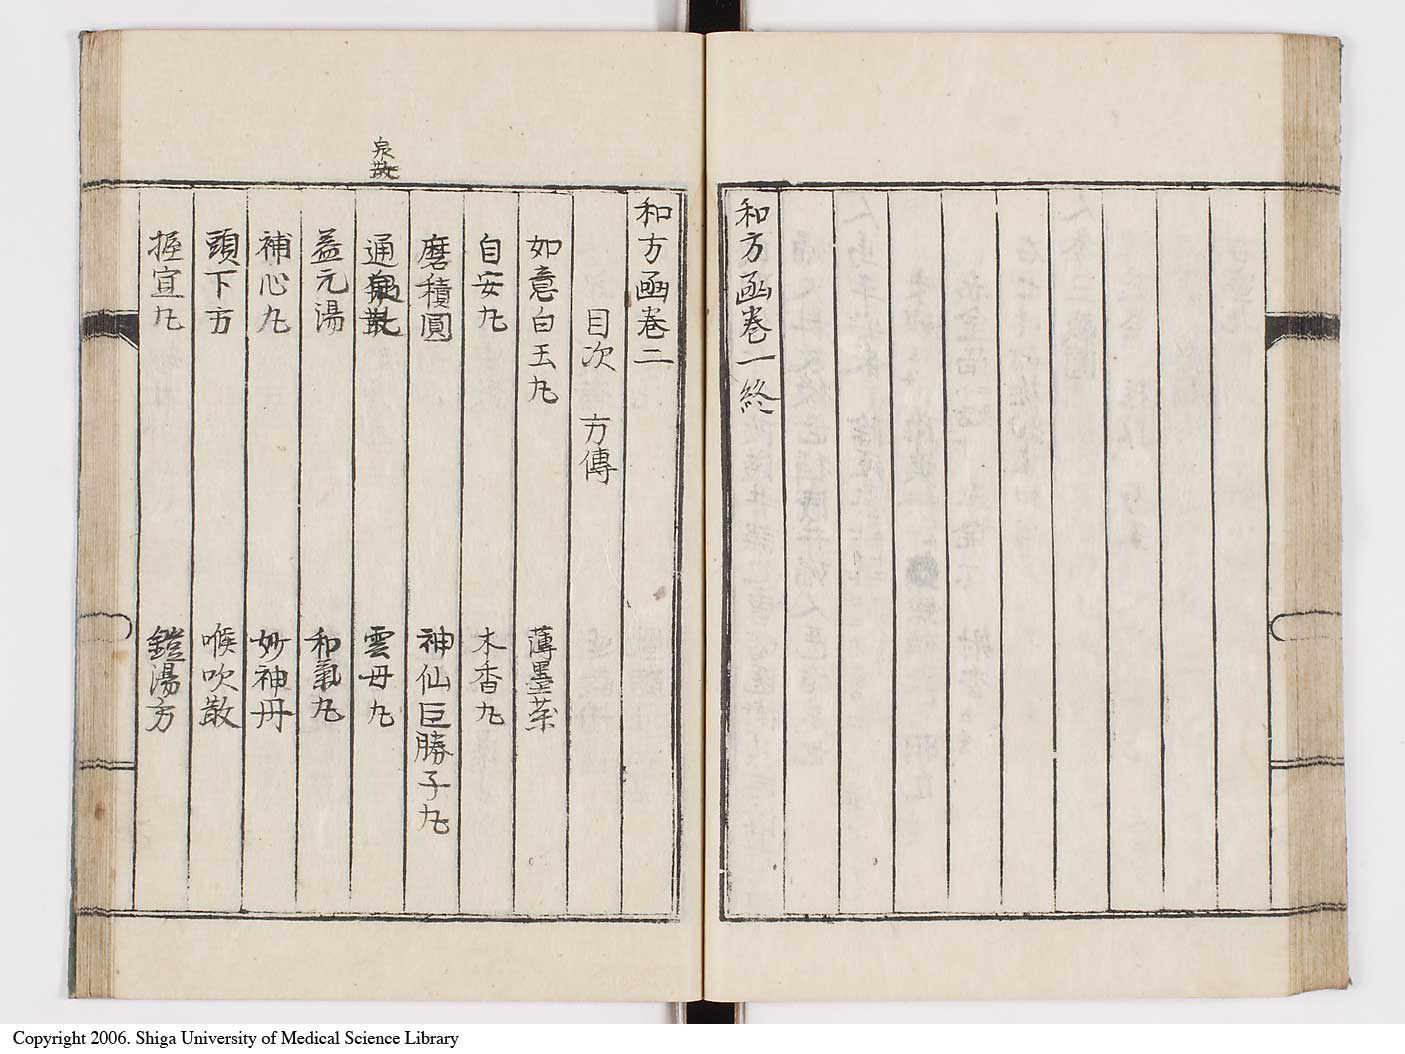 和方凾卷一終
和方凾卷二
目次 方傳
如意白玉丸 薄墨茶
自安丸 木香丸
磨積圓 神仙巨勝子丸
泉散
通泉散 雲母丸
益元湯 和氣丸
補心丸 妙神丹
頭下方 喉吹散
握宣丸 鎧湯方
Copyright 2006. Shiga University of Medical Science Library